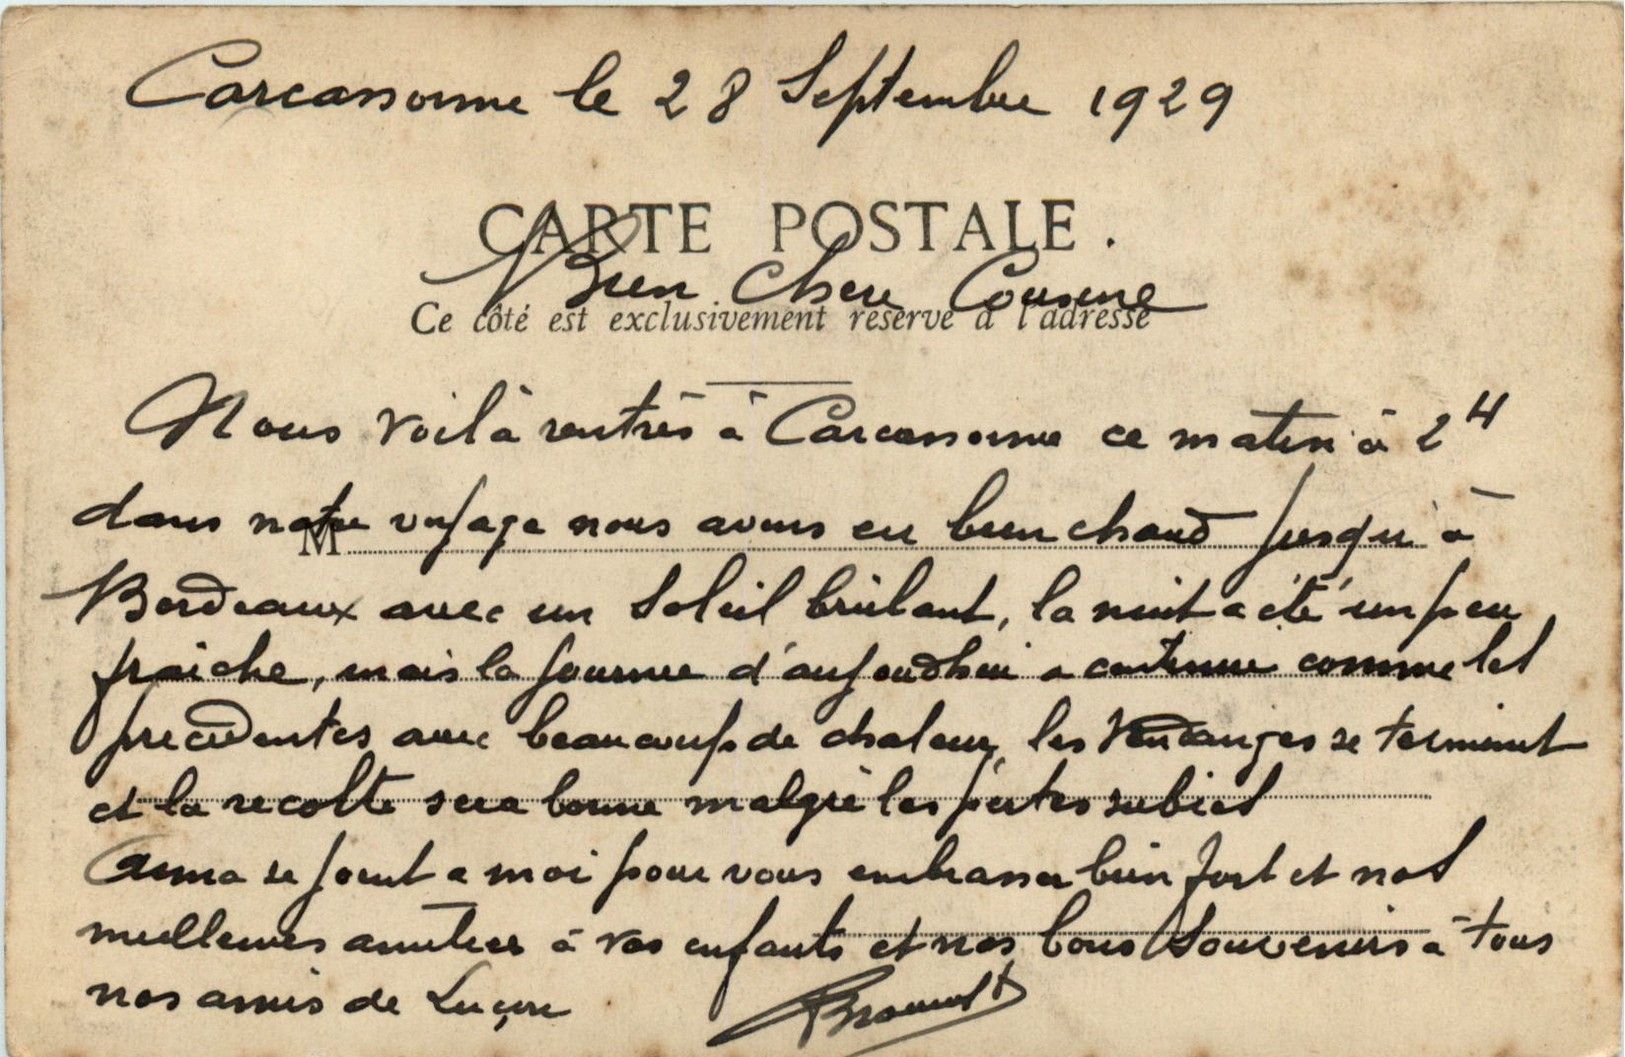 Carcassonne le 28 Septembre 1929
CARTE POSTALE.
Bien Chere Cousine
Ce côté est exclusivement réservé à l'adresse
Nous voilà rentrés à Carcassonne ce matin à 2H
dans notre voyage nous avons eu bien chaud jusqu'à
M
Bordeaux avec un Soleil brûlant, la nuit a été un peu
fraiche, mais la journee d'aujourdhui a continué comme les
precedentes avec beaucoup de chaleur, les Vendanges se terminent
et la recolte sera bonne malgrè les pertes subies
Anna se joint a moi pour vous embrasser bien fort et nos
meilleures amities à vos enfants et nos bons Souvenirs à tous
nos amis de Luçon